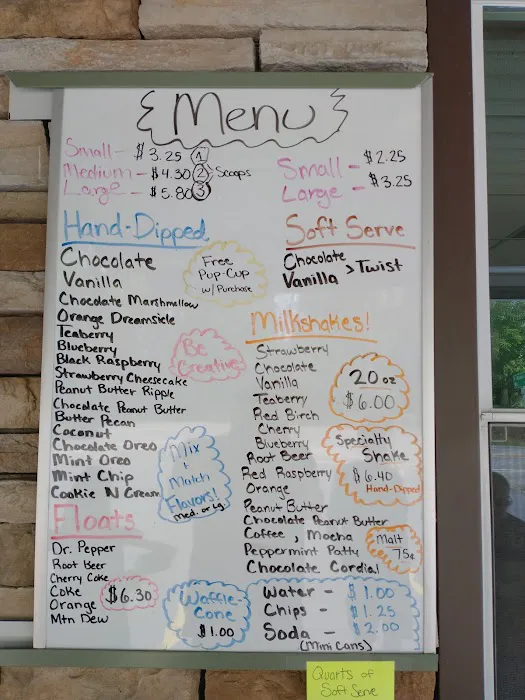 Menu
Small - $3.25 1
Medium - $4.30 2 Scoops
Large - $5.80 3
Small - $2.25
Large - $3.25
Hand-Dipped
Chocolate
Vanilla
Chocolate Marshmallow
Orange Dreamsicle
Teaberry
Blueberry
Black Raspberry
Strawberry Cheesecake
Peanut Butter Ripple
Chocolate Peanut Butter
Butter Pecan
Coconut
Chocolate Oreo
Mint Oreo
Mint Chip
Cookie N Cream
Free
Pup-Cup
w/ Purchase
Be
Creative!
Mix
+
Match
Flavors!
med. or Lg.
Soft Serve
Chocolate
Vanilla > Twist
Milkshakes!
Strawberry
Chocolate
Vanilla
Teaberry
Red Birch
Cherry
Blueberry
Root Beer
Red Raspberry
Orange
Peanut Butter
Chocolate Peanut Butter
Coffee, Mocha
Peppermint Patty
Chocolate Cordial
20 oz
$6.00
Specialty
Shake
$6.40
Hand-Dipped
Malt
75¢
Floats
Dr. Pepper
Root Beer
Cherry Coke
Coke
Orange
Mtn Dew
$6.30
Waffle-
Cone
$1.00
Water - $1.00
Chips - $1.25
Soda - $2.00
(Mini Cans)
Quarts of
Soft Serve